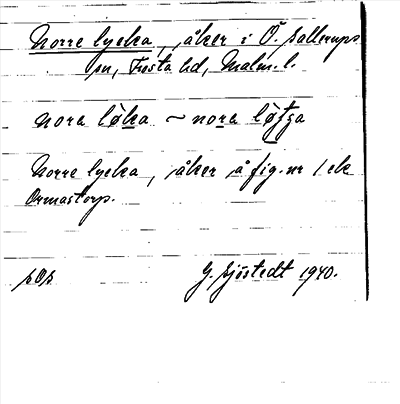 Norre lycka, åker i Ö. Sallerups
sn, Frosta hd, Malm. l.
nora løka ~ nora løtga
Norre lycka, åker å fig. nr 1 ek
Ormastorp.
sOs G. Sjöstedt 1940.